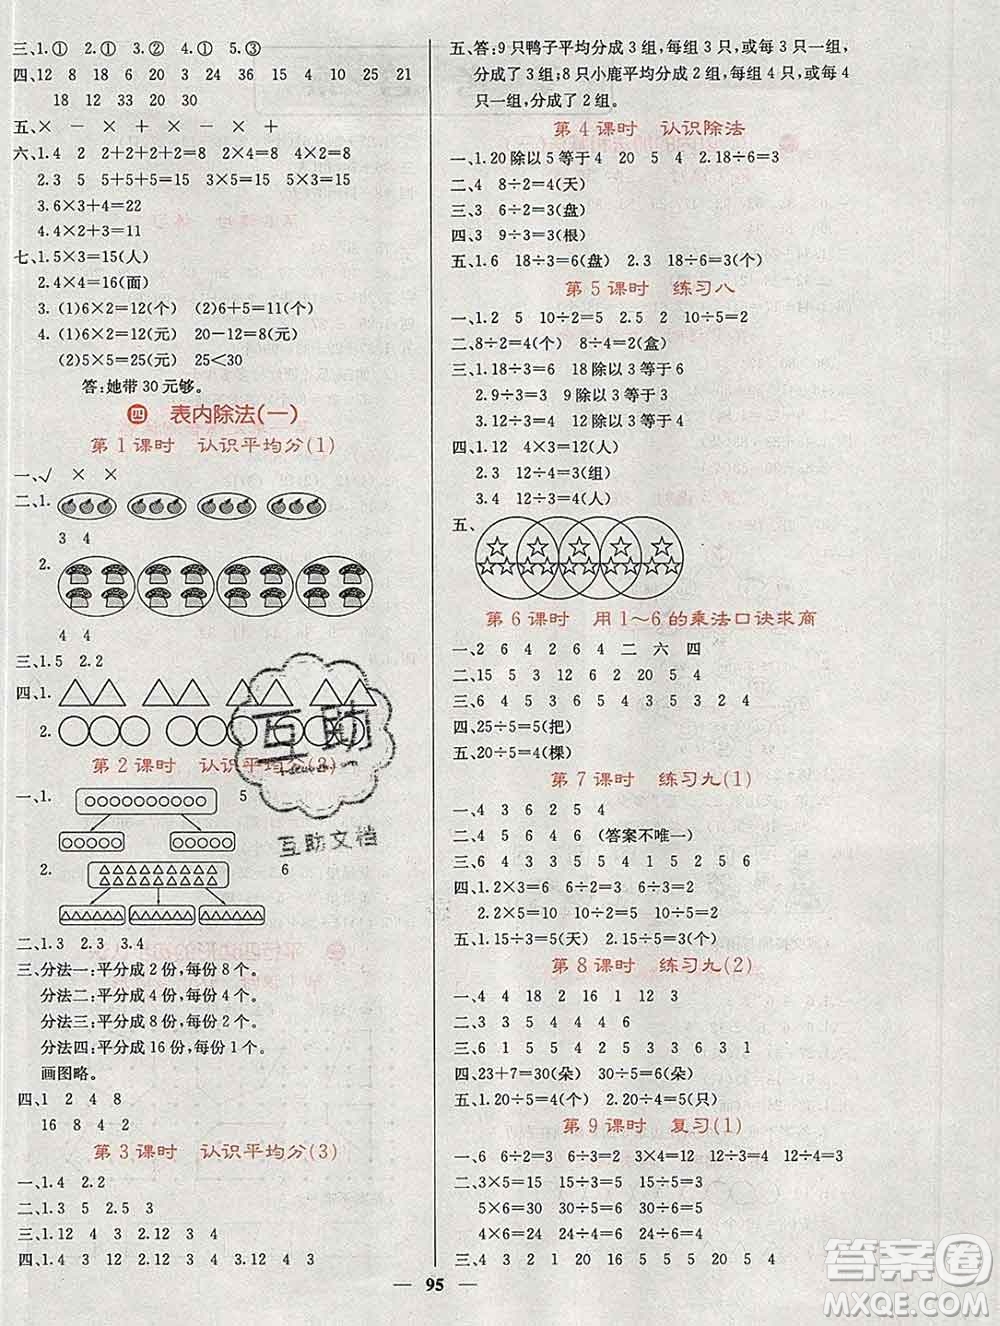 三、1.① 2.① 3.② 4.① 5.③
四、12 8 18 6 20 3 24 36 15 4 10 25 21
18 12 33 20 30
五、× － － ＋ × － × － × ＋
六、1.4 2 2+2+2+2=8 2×4=8 4×2=8
2.3 5 5+5+5=15 5×3=15 3×5=15
3.6×3+4=22
4.4×2+3=11
七、1.5×3=15(人)
2.4×4=16(面)
3.(1)6×2=12(个) (2)6+5=11(个)
4.(1)6×2=12(元) 20-12=8(元)
(2)5×5=25(元) 25<30
答:她带 30 元够。
四 表内除法(一)
第 1 课时 认识平均分(1)
一、√ × ×
二、1.
3 4
2.
4 4
三、1.5 2.2
四、1.
2.
第 2 课时 认识平均分(2)
一、1. 5
2. 6
二、1.3 2.3 3.4
三、分法一:平分成 2 份,每份 8 个。
分法二:平分成 4 份,每份 4 个。
分法三:平分成 8 份,每份 2 个。
分法四:平分成 16 份,每份 1 个。
画图略。
四、1 2 4 8
16 8 4 2
第 3 课时 认识平均分(3)
一、1.4 2.2
二、1.2 5 2.5 3
三、1.12 4 3 2.12 3 4
四、1.4 3 12 2.3 4 3.12 4 3
五、答:9 只鸭子平均分成 3 组,每组 3 只,或每 3 只一组,
分成了 3 组;8 只小鹿平均分成 2 组,每组 4 只,或每 4
只一组,分成了 2 组。
第 4 课时 认识除法
一、1.20 除以 5 等于 4 20 5 4 2.18÷6=3
二、4 8÷2=4(天)
三、3 6÷2=3(盘)
四、3 9÷3=3(根)
五、1.6 18÷3=6(盘) 2.3 18÷6=3(个)
第 5 课时 练习八
一、1.2 5 10÷2=5 2.5 2 10÷5=2
二、8÷2=4(个) 8÷4=2(盒)
三、1.18÷3=6 18 除以 3 等于 6
2.9÷3=3 9 除以 3 等于 3
3.12÷3=4 12 除以 3 等于 4
四、1.12 4×3=12(人)
2.3 12÷4=3(组)
3.4 12÷3=4(人)
五、
第 6 课时 用 1～6 的乘法口诀求商
一、2 6 4 2 6 4 二 六 四
二、15 5 3 12 6 2 20 5 4
三、6 5 6 1 4 4 5 3 5 2 3 4
四、25÷5=5(把)
五、20÷5=4(棵)
第 7 课时 练习九(1)
一、4 3 6 2 5 4
二、4 5 6 4 6 (答案不唯一)
三、6 4 6 5 4 5 4 5 3 3 2 4
四、1.2×3=6 6÷2=3 6÷3=2
2.2×5=10 10÷2=5 10÷5=2
五、1.15÷3=5(天) 2.15÷5=3(个)
第 8 课时 练习九(2)
一、4 4 18 2 16 1 12 3
二、3 3 5 4 4 4 6
三、6 5 4 4 2 5 3 3 5 6 3 1
四、23+7=30(朵) 30÷5=6(朵)
五、1.20÷5=4(个) 2.20÷4=5(只)
第 9 课时 复习(1)
一、6 6÷2=3 6÷3=2 3×4=12 12÷3=4 12÷4=3
二、3×5=15 15÷3=5 15÷5=3
5×6=30 30÷5=6 30÷6=5
4×6=24 24÷4=6 24÷6=4
三、4 3 1 2 20 16 5 5 15 3 5 4
95
互助
互助文档
答案圈
MXQE.COM